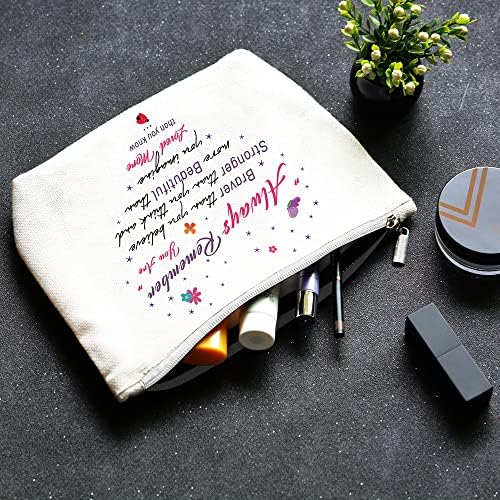 "Always Remember
You Are "
Braver than you believe
Stronger than you think and
more Beautiful than
you imagine
Loved More
than you know
...